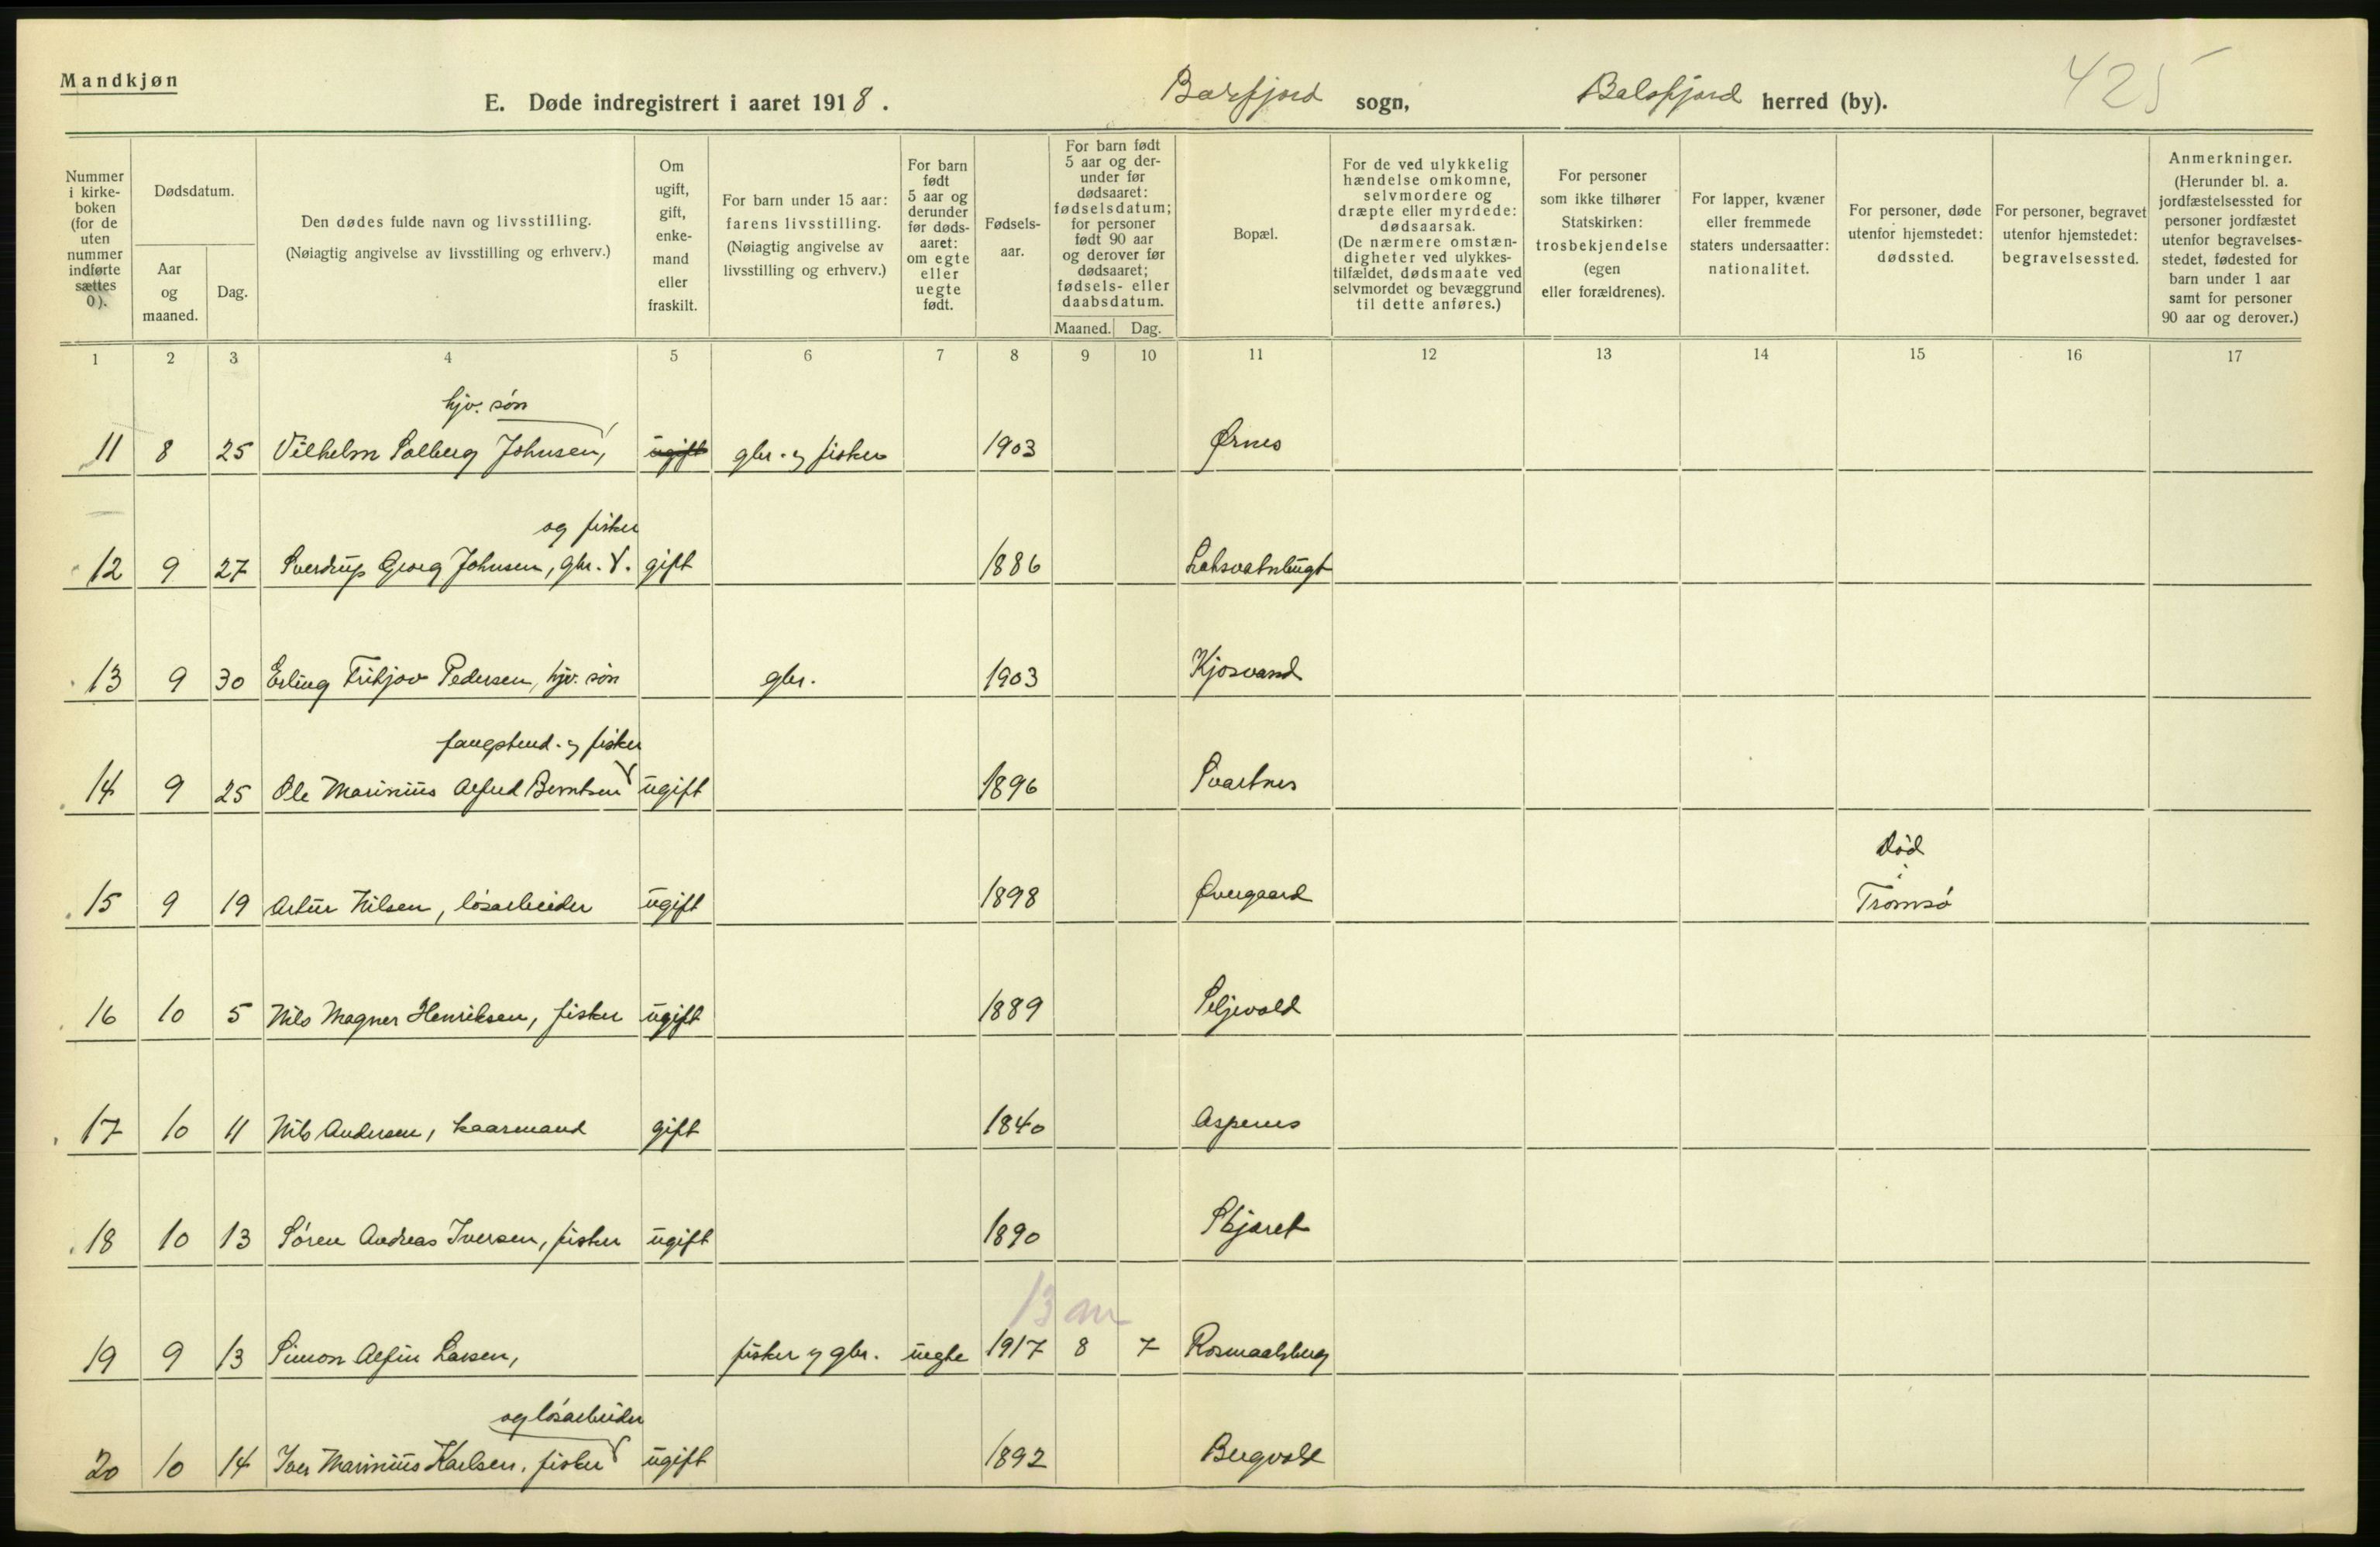 Mandkjøn
E. Døde indregistrert i aaret 1918. Balsfjord sogn, Balsfjord herred (by).
425
Nummer i kirke- boken (for de uten nummer indførte sættes 0).
Dødsdatum.
Aar og maaned.
Dag.
Den dødes fulde navn og livsstilling.
(Nøiagtig angivelse av livsstilling og erhverv.)
Om ugift, gift, enke- mand eller fraskilt.
For barn under 15 aar: farens livsstilling. (Nøiagtig angivelse av livsstilling og erhverv.)
For barn født 5 aar og derunder før døds- aaret: om egte eller uegte født.
Fødsels- aar.
For barn født 5 aar og der- under før dødsaaret: fødselsdatum; for personer født 90 aar og derover før dødsaaret; fødsels- eller daabsdatum.
Maaned. Dag.
Bopæl.
For de ved ulykkelig hændelse omkomne, selvmordere og dræpte eller myrdede: dødsaarsak. (De nærmere omstæn- digheter ved ulykkes- tilfældet, dødsmaate ved selvmordet og bevæggrund til dette anføres.)
For personer som ikke tilhører Statskirken: trosbekjendelse (egen eller forældrenes).
For lapper, kvæner eller fremmede staters undersaatter: nationalitet.
For personer, døde utenfor hjemstedet: dødssted.
For personer, begravet utenfor hjemstedet: begravelsessted.
Anmerkninger. (Herunder bl. a. jordfæstelsessted for personer jordfæstet utenfor begravelses- stedet, fødested for barn under 1 aar samt for personer 90 aar og derover.)
1 2 3 4 5 6 7 8 9 10 11 12 13 14 15 16 17
hjv. søn
11 8 25 Vilhelm Solberg Johnsen, ugift gbr. og fisker 1903 Ørnes
og fisker
12 9 27 Sverdrup Georg Johnsen, gbr. gift 1886 Laksvatnbugt
13 9 30 Erling Fritjov Pedersen, hjv. søn gbr. 1903 Kjosvand
fangstmd. og fisker
14 9 25 Ole Marinius Alfred Berntsen ugift 1896 Svartnes
Død
i
15 9 19 Artur Nilsen, løsarbeider ugift 1898 Øvergaard Tromsø
16 10 5 Nils Magner Henriksen, fisker ugift 1889 Seljevold
17 10 11 Nils Andersen, kaarmand gift 1840 Aspenes
18 10 13 Søren Andreas Iversen, fisker ugift 1890 Skjæret
13
19 9 13 Simon Alfin Larsen, fisker og gbr. uegte 1917 8 7 Rosmaalsberg
og løsarbeider
20 10 14 Iver Marinius Karlsen, fisker ugift 1892 Bergvold